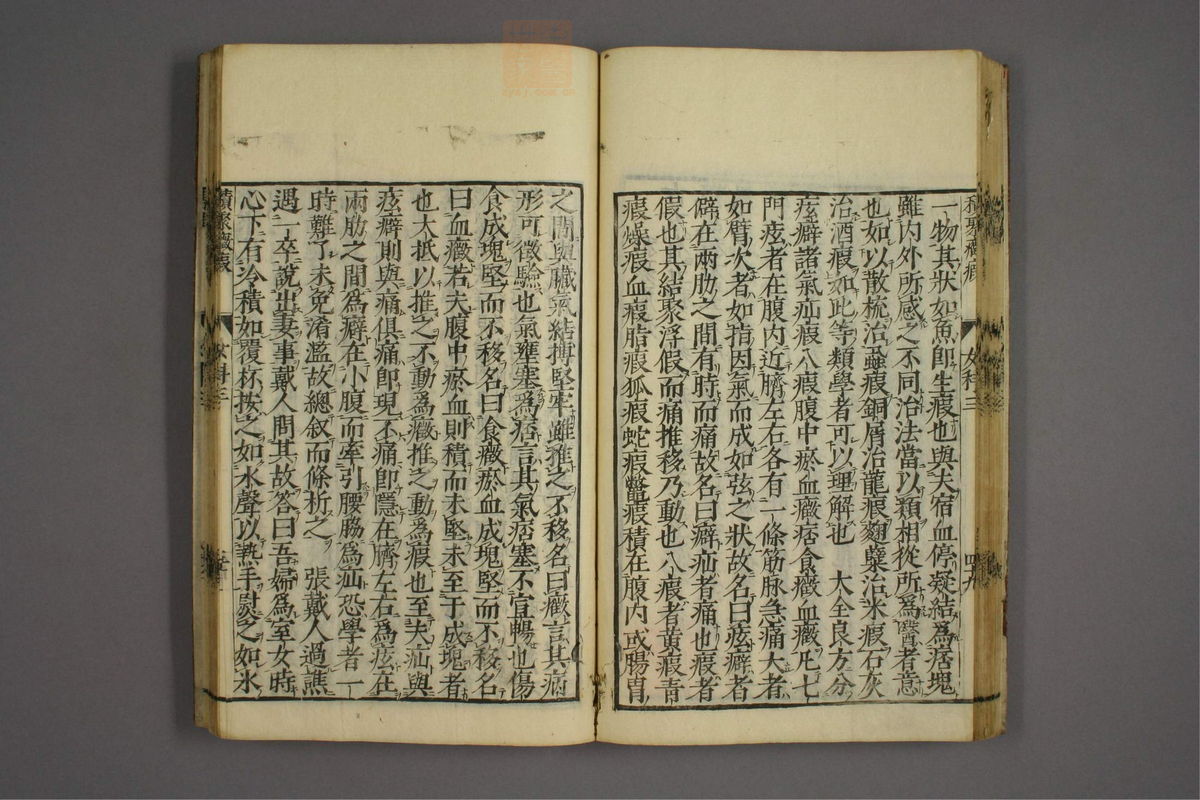 一物其狀如魚即生瘕也與夫宿血停凝結為痞塊
雖内外所感之不同治法當以類相從所為醫者意
也如以散梳治蝨瘕銅屑治龍瘕麹蘖治米瘕石灰
治酒瘕如此等類學者可以理解也　大全良方分
痃癖諸氣疝瘕八瘕腹中瘀血癥痞食癥血癥凡七
門痃者在腹内近臍左右各有一條筋脉急痛大者
如臂次者如指因氣而成如弦之狀故名曰痃癖者
僻在兩肋之間有時而痛故名曰癖疝者痛也瘕者
假也其結聚浮假而痛推移乃動也八瘕者黄瘕青
瘕燥瘕血瘕脂瘕狐瘕蛇瘕鼈瘕積在腹内或腸胃
女科三
四九
之間與臟氣結搏堅牢雖推之不移名曰癥言其病
形可徵驗也氣壅塞為痞言其氣痞塞不宣暢也傷
食成塊堅而不移名曰食癥瘀血成塊堅而不移名
曰血癥若夫腹中瘀血則積而未堅未至于成塊者
也大抵以推之不動為癥推之動為瘕也至夫疝與
痃癖則與痛俱痛即現不痛即隱在臍左右為痃在
兩肋之間為癖在小腹而牽引腰脇為疝恐學者一
時難了未免淆濫故總叙而條析之　張戴人過譙
遇一卒說出妻事戴人問其故答曰吾婦為室女時
心下有冷積如覆杯按之如水聲以熱手熨之如氷
積聚癥瘕